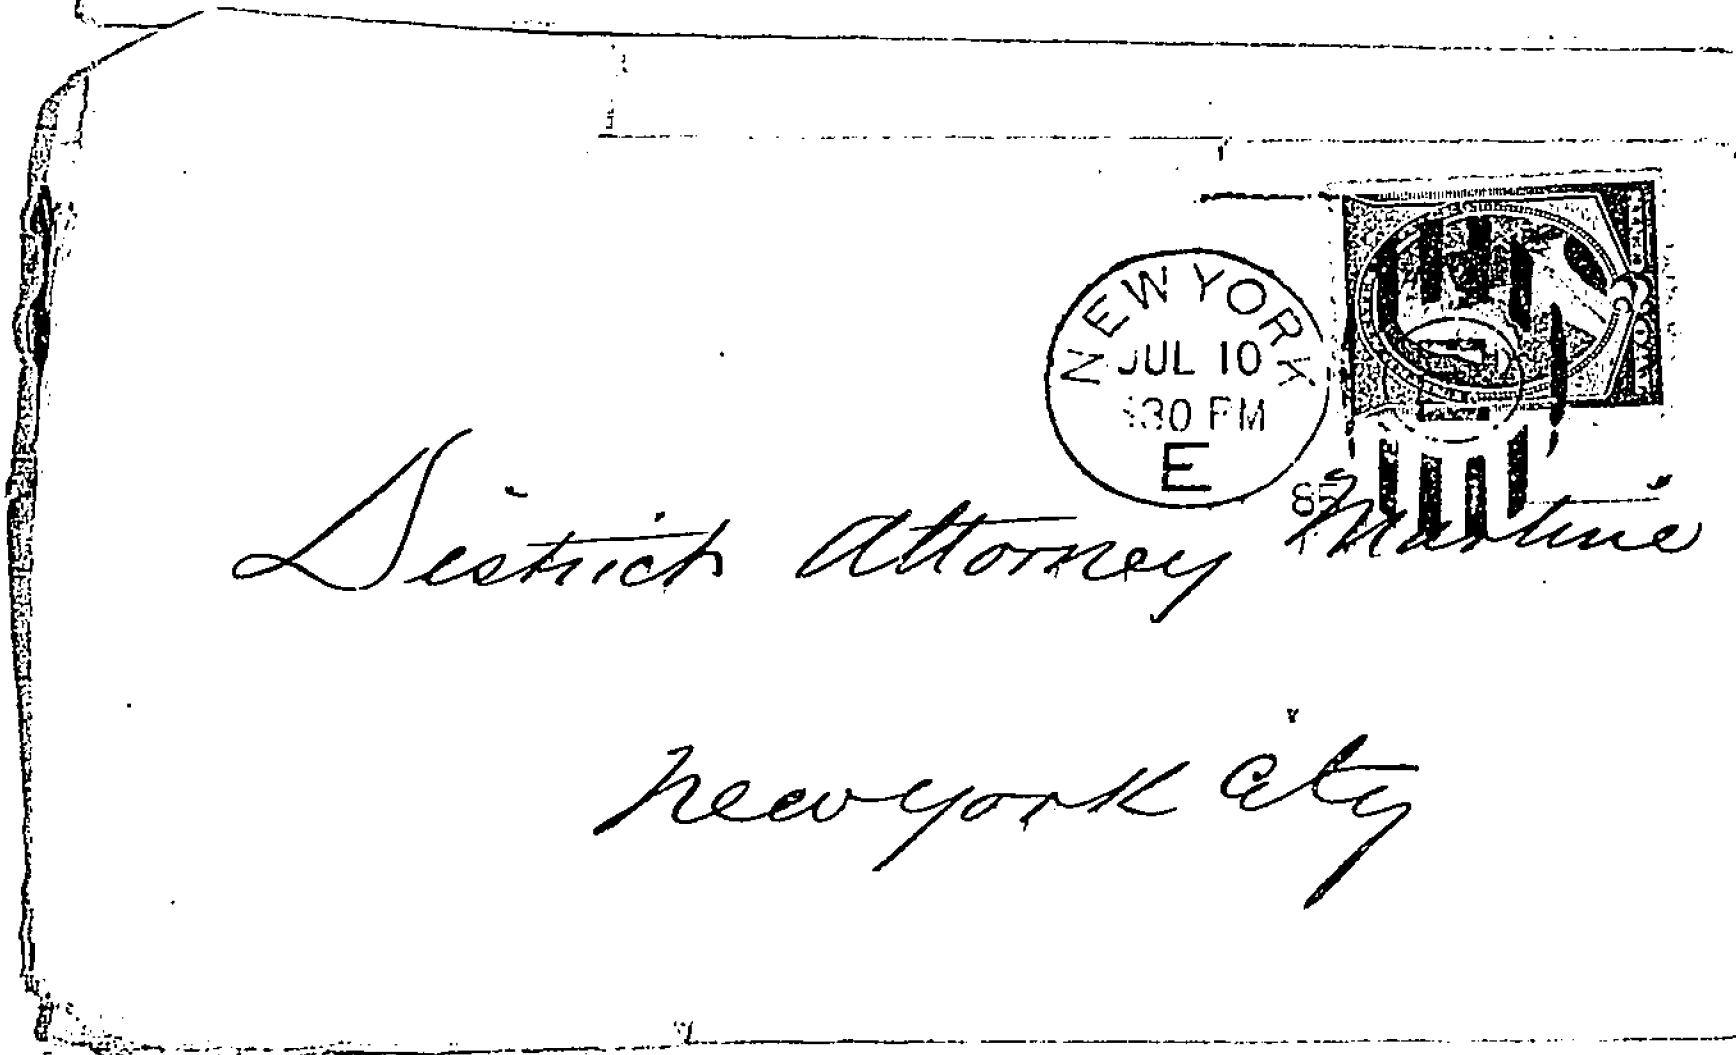 NEW YORK
JUL 10
30 PM
E
85
District Attorney Martine
New York City